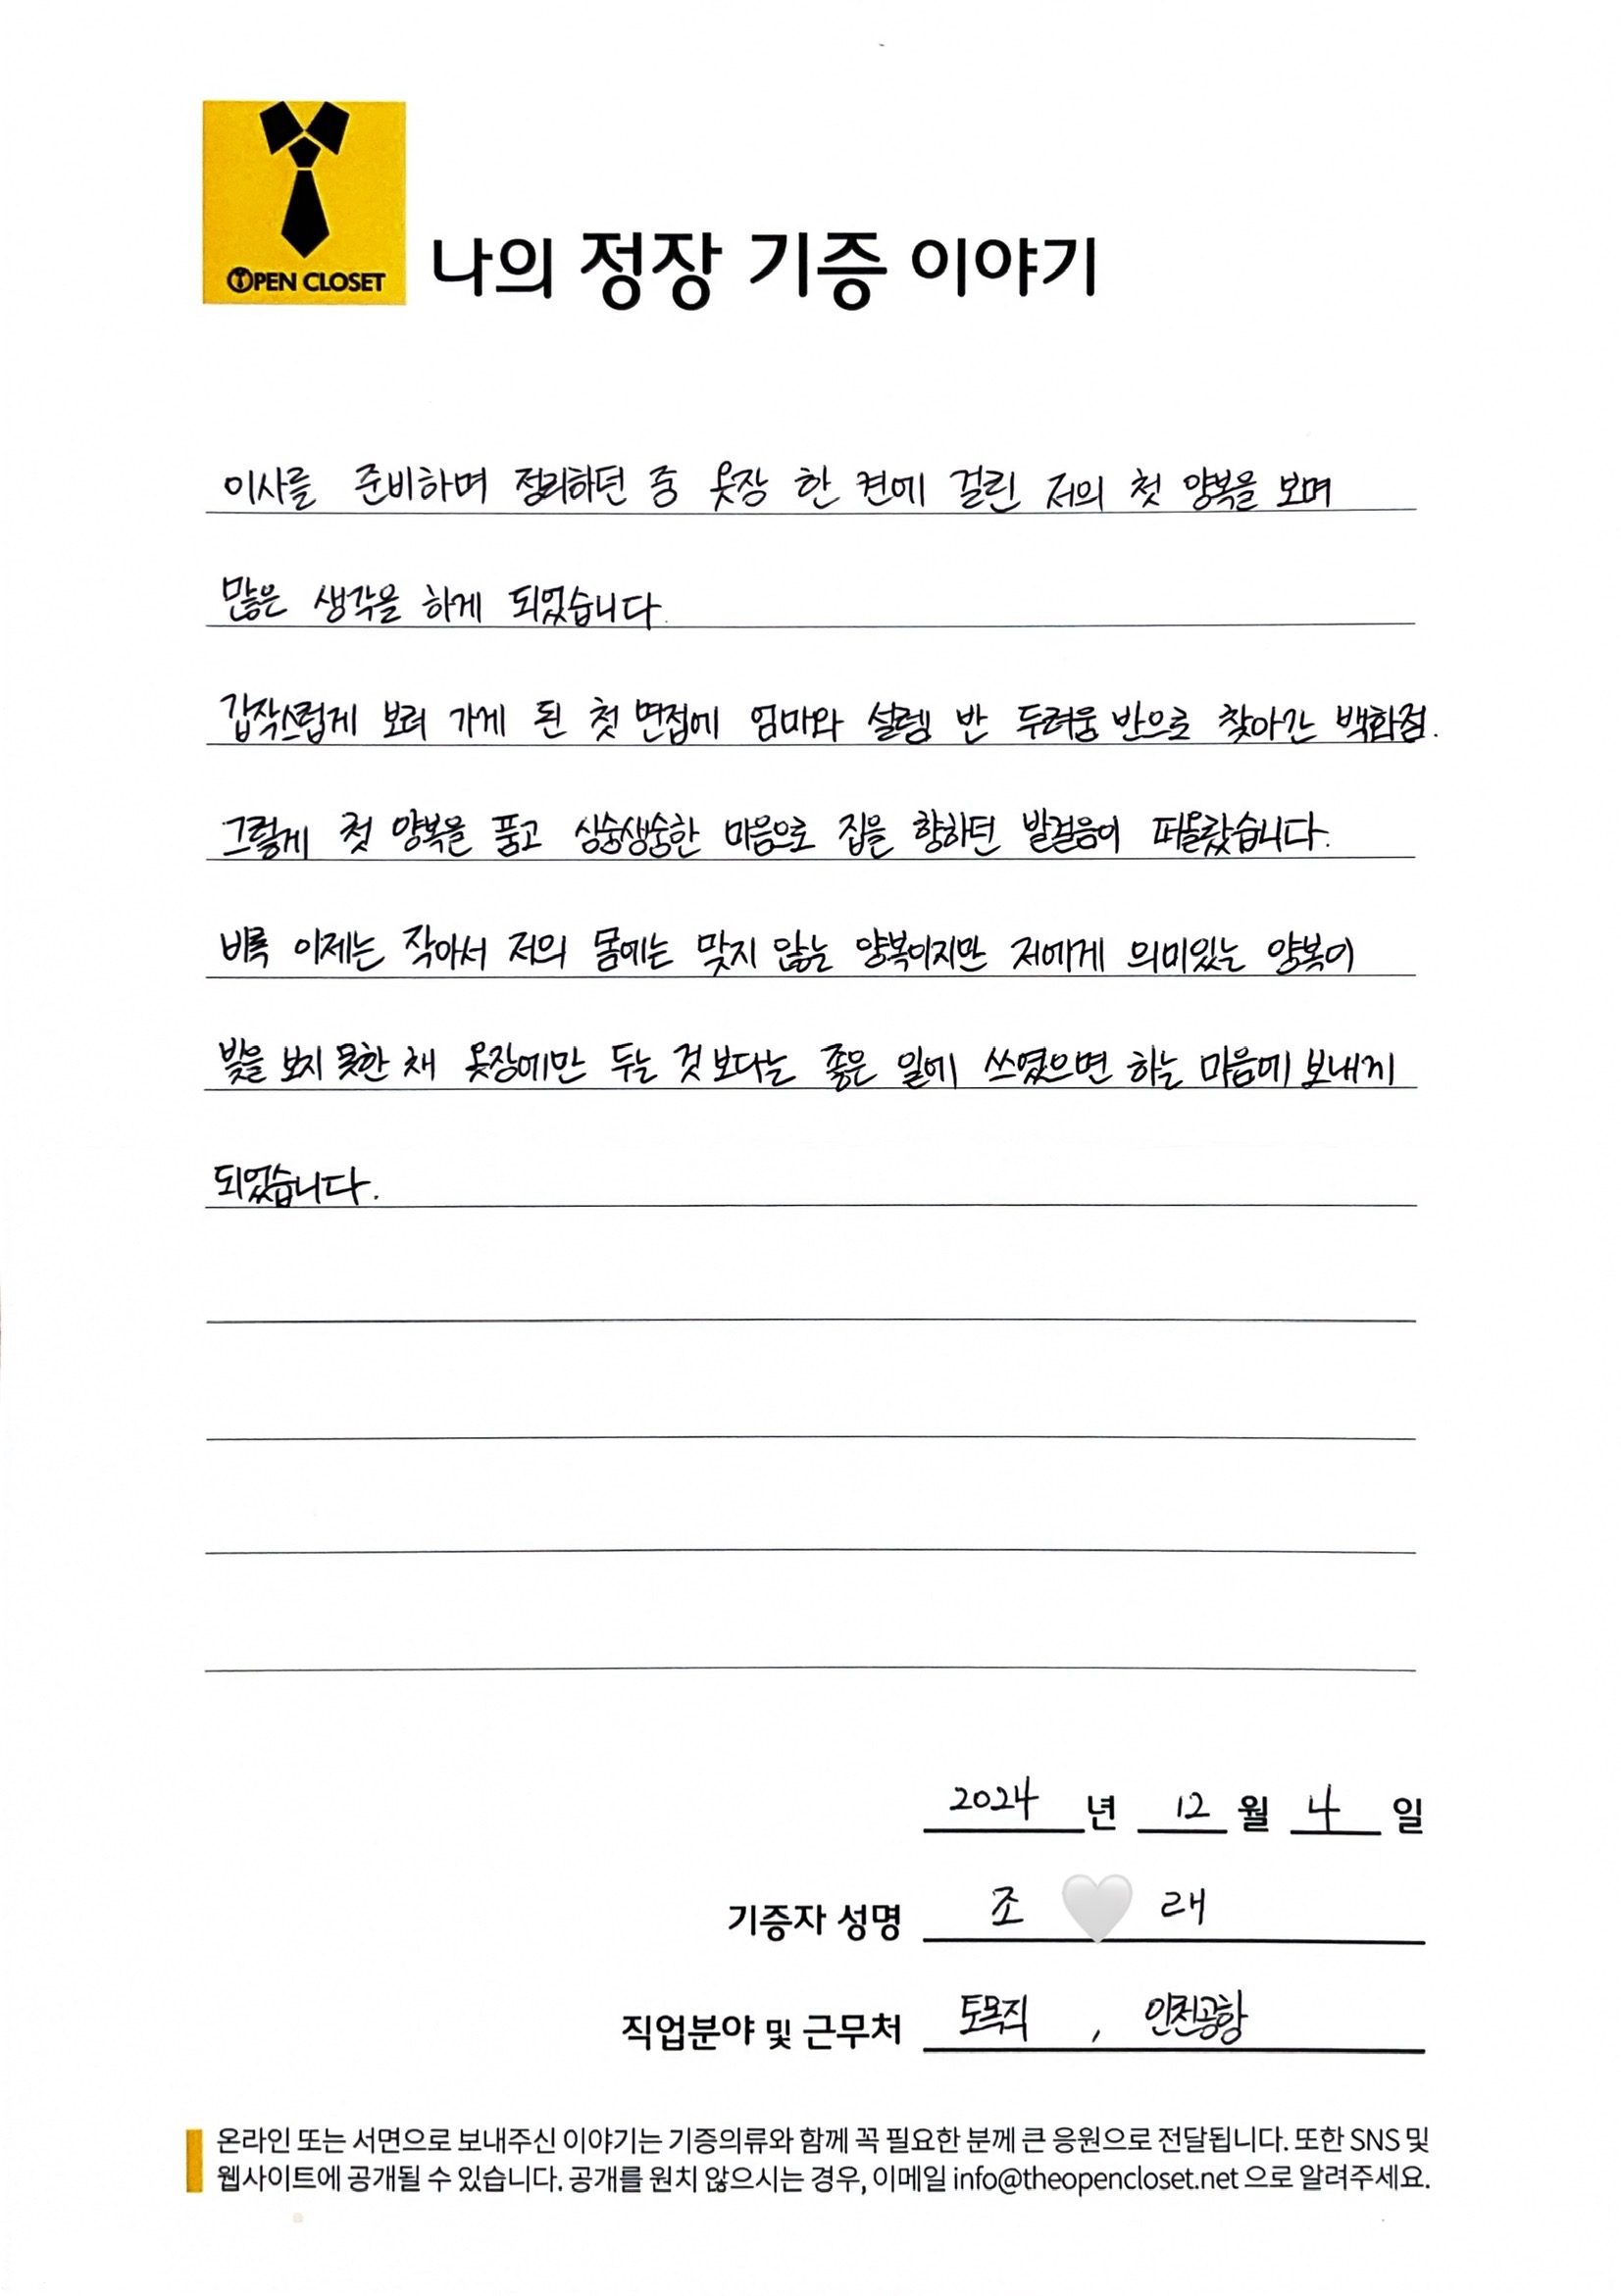 OPEN CLOSET
나의 정장 기증 이야기
이사를 준비하며 정리하던 중 옷장 한 켠에 걸린 저의 첫 양복을 보며
많은 생각을 하게 되었습니다.
갑작스럽게 보러 가게 된 첫 면접에 엄마와 설렘 반 두려움 반으로 찾아간 백화점.
그렇게 첫 양복을 품고 싱숭생숭한 마음으로 집을 향하던 발걸음이 떠올랐습니다.
비록 이제는 작아서 저의 몸에는 맞지 않는 양복이지만 저에게 의미있는 양복이
빛을 보지 못한 채 옷장에만 두는 것 보다는 좋은 일에 쓰였으면 하는 마음에 보내게
되었습니다.
2024 년 12 월 4 일
기증자 성명 조 🤍 래
직업분야 및 근무처 토목직 , 인천공항
온라인 또는 서면으로 보내주신 이야기는 기증의류와 함께 꼭 필요한 분께 큰 응원으로 전달됩니다. 또한 SNS 및
웹사이트에 공개될 수 있습니다. 공개를 원치 않으시는 경우, 이메일 info@theopencloset.net 으로 알려주세요.